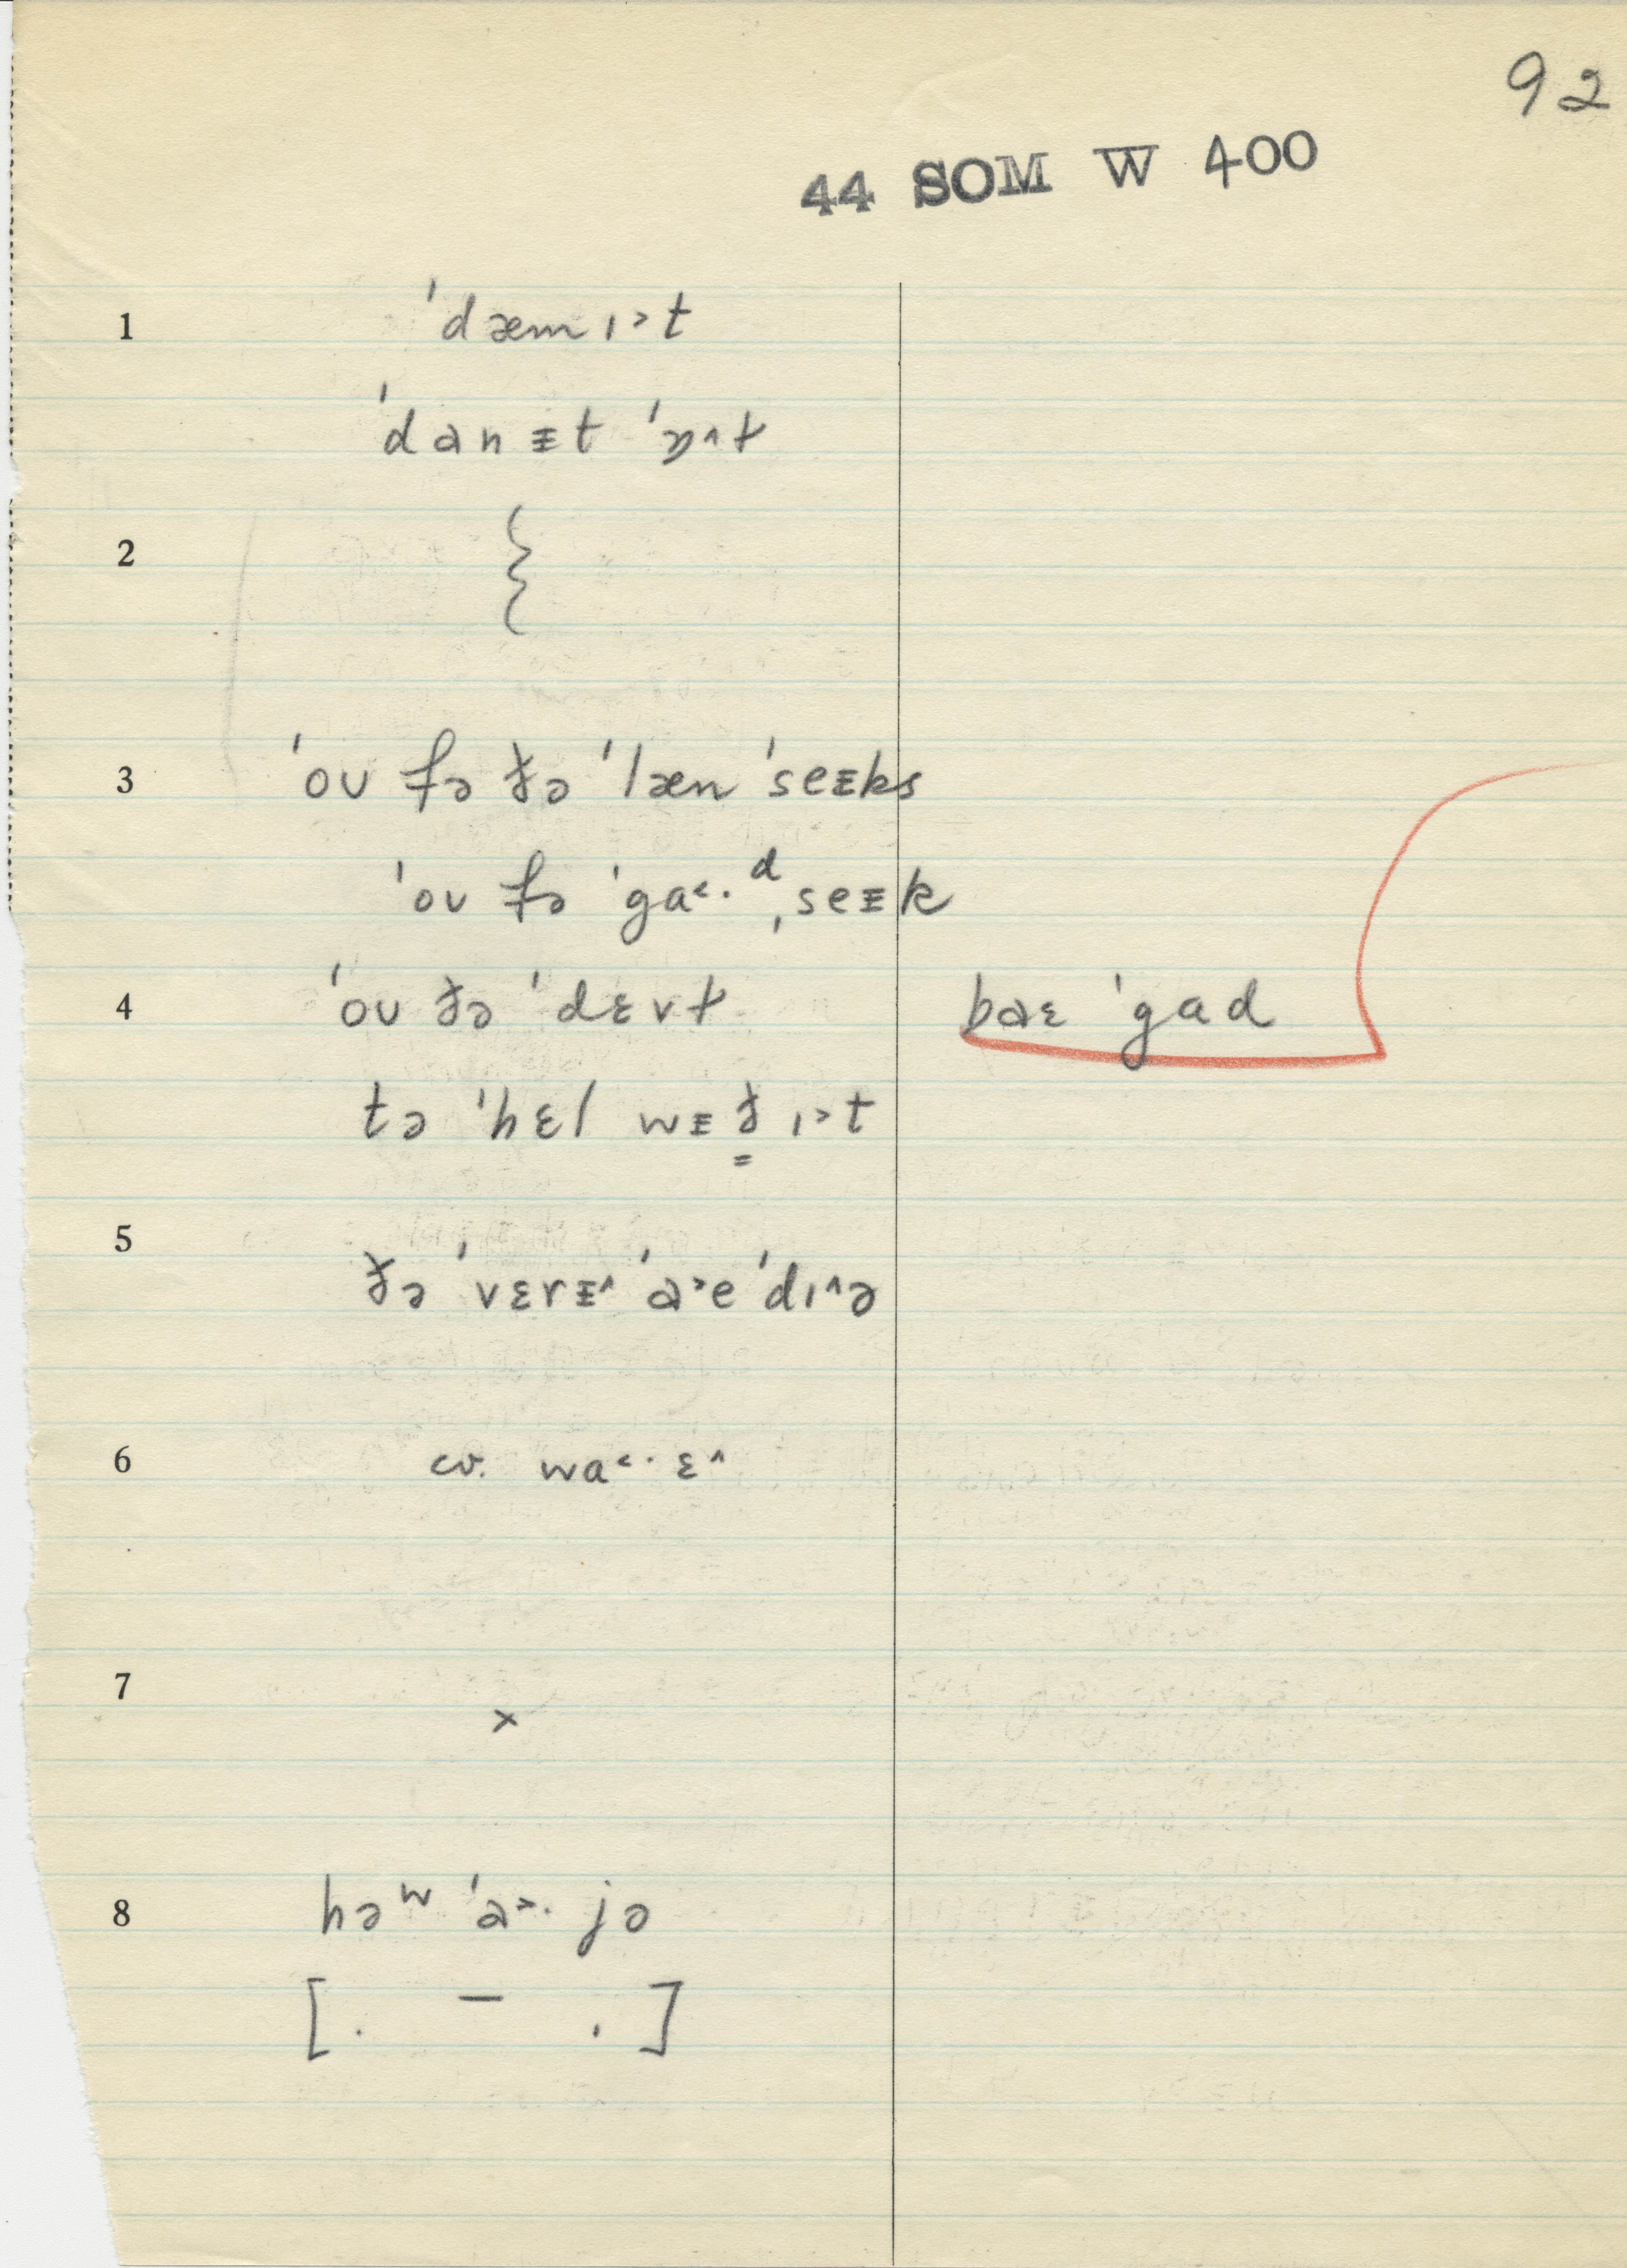 92
44 SOM W 400
1 ˈdæmɪ˃t
ˈdanᵻt ˈɒ^ɫ
2 {
3 ˈoʊ fə ðə ˈlæn ˈseᵻks
ˈoʊ fə ˈga˂·ᵈ ˌseᵻk
4 ˈoʊ ðə ˈdɛvɫ baɛ ˈgad
tə ˈhɛl wᵻð̳ ɪ˃t
5 ðə ˈvɛrᵻ^ ˈa˃e ˈdɪ^ə
6 cv. wa˂· ɛ^
7 ×
8 həʷ ˈa˃· jə
[. – .]